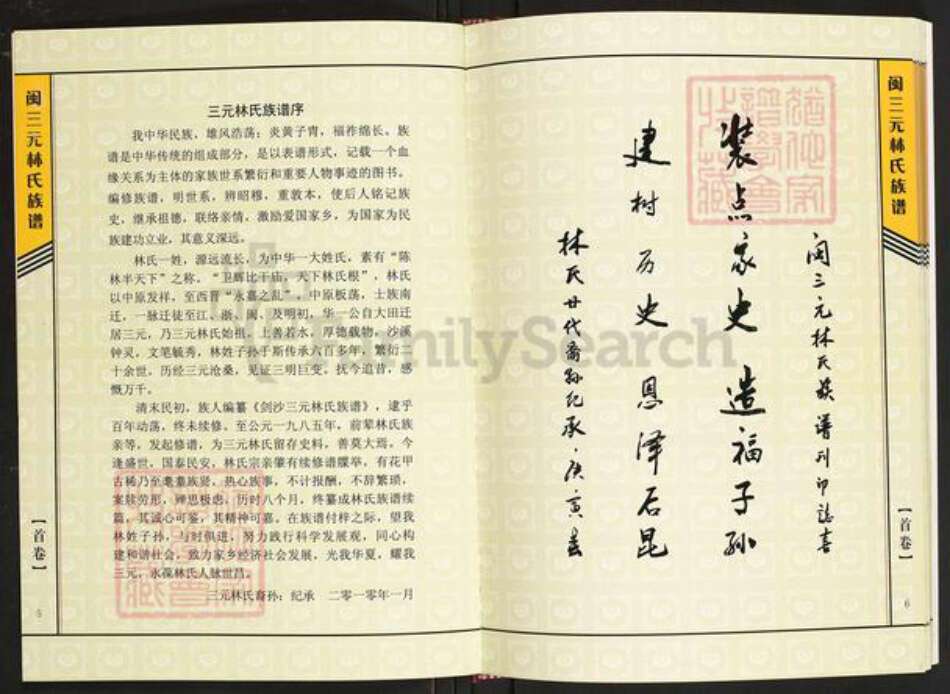 闽三元林氏族谱
三元林氏族谱序
我中华民族，雄风浩荡；炎黄子胄，福祚绵长。族
谱是中华传统的组成部分，是以表谱形式，记载一个血
缘关系为主体的家族世系繁衍和重要人物事迹的图书。
编修族谱，明世系，辨昭穆，重敦本，使后人铭记族
史，继承祖德，联络亲情，激励爱国家乡，为国家为民
族建功立业，其意义深远。
林氏一姓，源远流长，为中华一大姓氏，素有“陈
林半天下”之称。“卫辉比干庙，天下林氏根”，林氏
以中原发祥，至西晋“永嘉之乱”，中原板荡，士族南
迁，一脉迁徒至江、浙、闽、及明初，华一公自大田迁
居三元，乃三元林氏始祖。上善若水，厚德载物，沙溪
钟灵，文笔毓秀，林姓子孙于斯传承六百多年，繁衍二
十余世，历经三元沧桑，见证三明巨变。抚今追昔，感
慨万千。
清末民初，族人编纂《剑沙三元林氏族谱》，逮乎
百年动荡，终未续修。至公元一九八五年，前辈林氏族
亲等，发起修谱，为三元林氏留存史料，善莫大焉。今
逢盛世，国泰民安，林氏宗亲肇有续修谱牒举，有花甲
古稀乃至耄耋族贤，热心族事，不计报酬，不辞繁琐，
案牍劳形，殚思极虑，历时八个月，终纂成林氏族谱续
篇，其诚心可鉴，其精神可嘉。在族谱付梓之际，望我
林姓子孙，与时俱进，努力践行科学发展观，同心构
建和谐社会，致力家乡经济社会发展，光我华夏，耀我
三元，永葆林氏人脉世昌。
三元林氏裔孙：纪承　二零一零年一月
【首卷】
5
闽三元林氏族谱刊印志喜
装点家史 造福子孙
建树历史 恩泽后昆
林氏廿代裔孙纪承·庚寅春
闽三元林氏族谱
【首卷】
6
FamilySearch